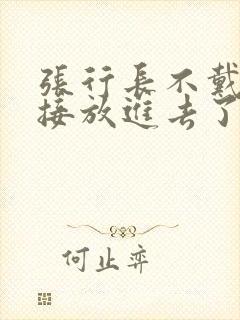 張行長不戴
接放進去了
何止弈